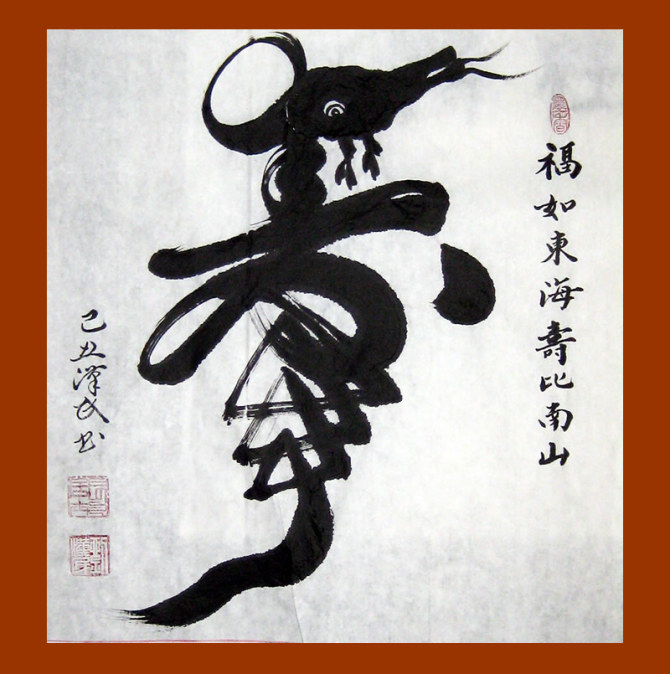 福如東海壽比南山
壽
己丑澤民书